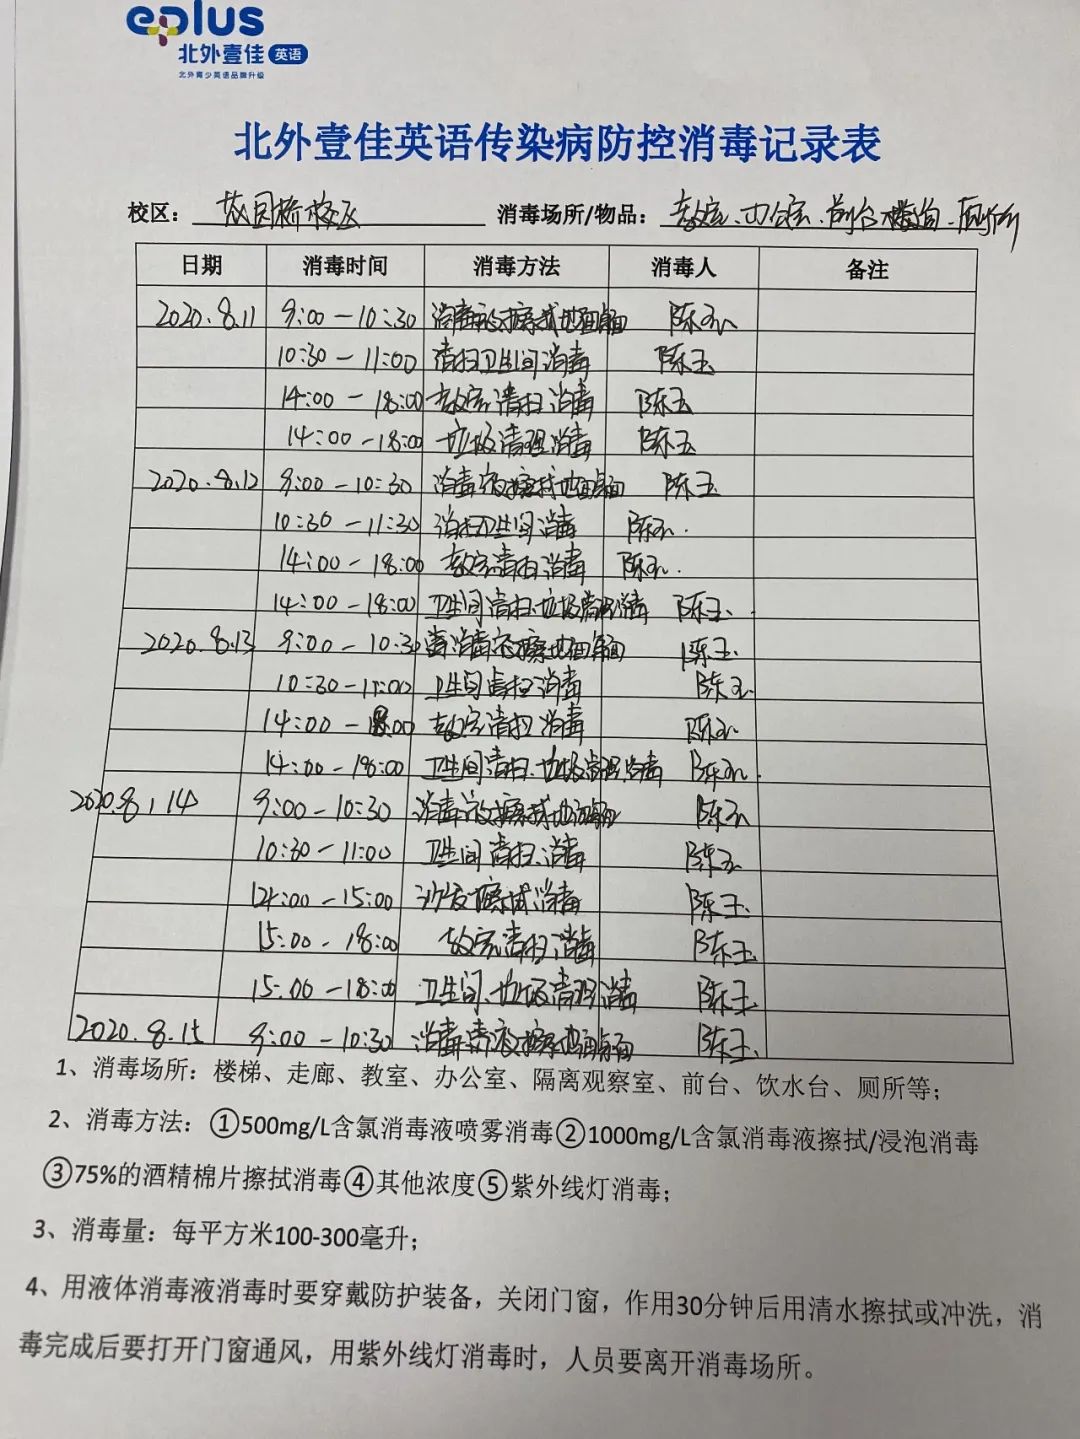 eplus
北外壹佳 英语
北外青少英语品牌升级
北外壹佳英语传染病防控消毒记录表
校区： 校区 消毒场所/物品： 教室、办公室、前台、厕所
日期 消毒时间 消毒方法 消毒人 备注
2020.8.11 9:00-10:30 消毒液擦拭地面桌面 陈玉
10:30-11:00 清扫卫生间消毒 陈玉
14:00-18:00 教室清扫消毒 陈玉
14:00-18:00 垃圾清理消毒 陈玉
2020.8.12 9:00-10:30 消毒液擦拭地面桌面 陈玉
10:30-11:30 清扫卫生间消毒 陈玉.
14:00-18:00 教室清扫消毒 陈玉.
14:00-18:00 卫生间清扫.垃圾清理消毒 陈玉.
2020.8.13 9:00-10:30 消毒液擦地面桌面 陈玉.
10:30-11:00 卫生间清扫消毒 陈玉
14:00-18:00 教室清扫消毒 陈玉.
14:00-18:00 卫生间清扫.垃圾清理消毒 陈玉.
2020.8.14 9:00-10:30 消毒液擦拭地面桌面 陈玉
10:30-11:00 卫生间清扫.消毒 陈玉
14:00-15:00 沙发擦拭消毒 陈玉.
15:00-18:00 教室清扫消毒 陈玉.
15:00-18:00 卫生间、垃圾清理消毒 陈玉.
2020.8.15 9:00-10:30 消毒液擦地面桌面 陈玉.
1、消毒场所：楼梯、走廊、教室、办公室、隔离观察室、前台、饮水台、厕所等；
2、消毒方法：①500mg/L含氯消毒液喷雾消毒②1000mg/L含氯消毒液擦拭/浸泡消毒
③75%的酒精棉片擦拭消毒④其他浓度⑤紫外线灯消毒；
3、消毒量：每平方米100-300毫升；
4、用液体消毒液消毒时要穿戴防护装备，关闭门窗，作用30分钟后用清水擦拭或冲洗，消
毒完成后要打开门窗通风，用紫外线灯消毒时，人员要离开消毒场所。